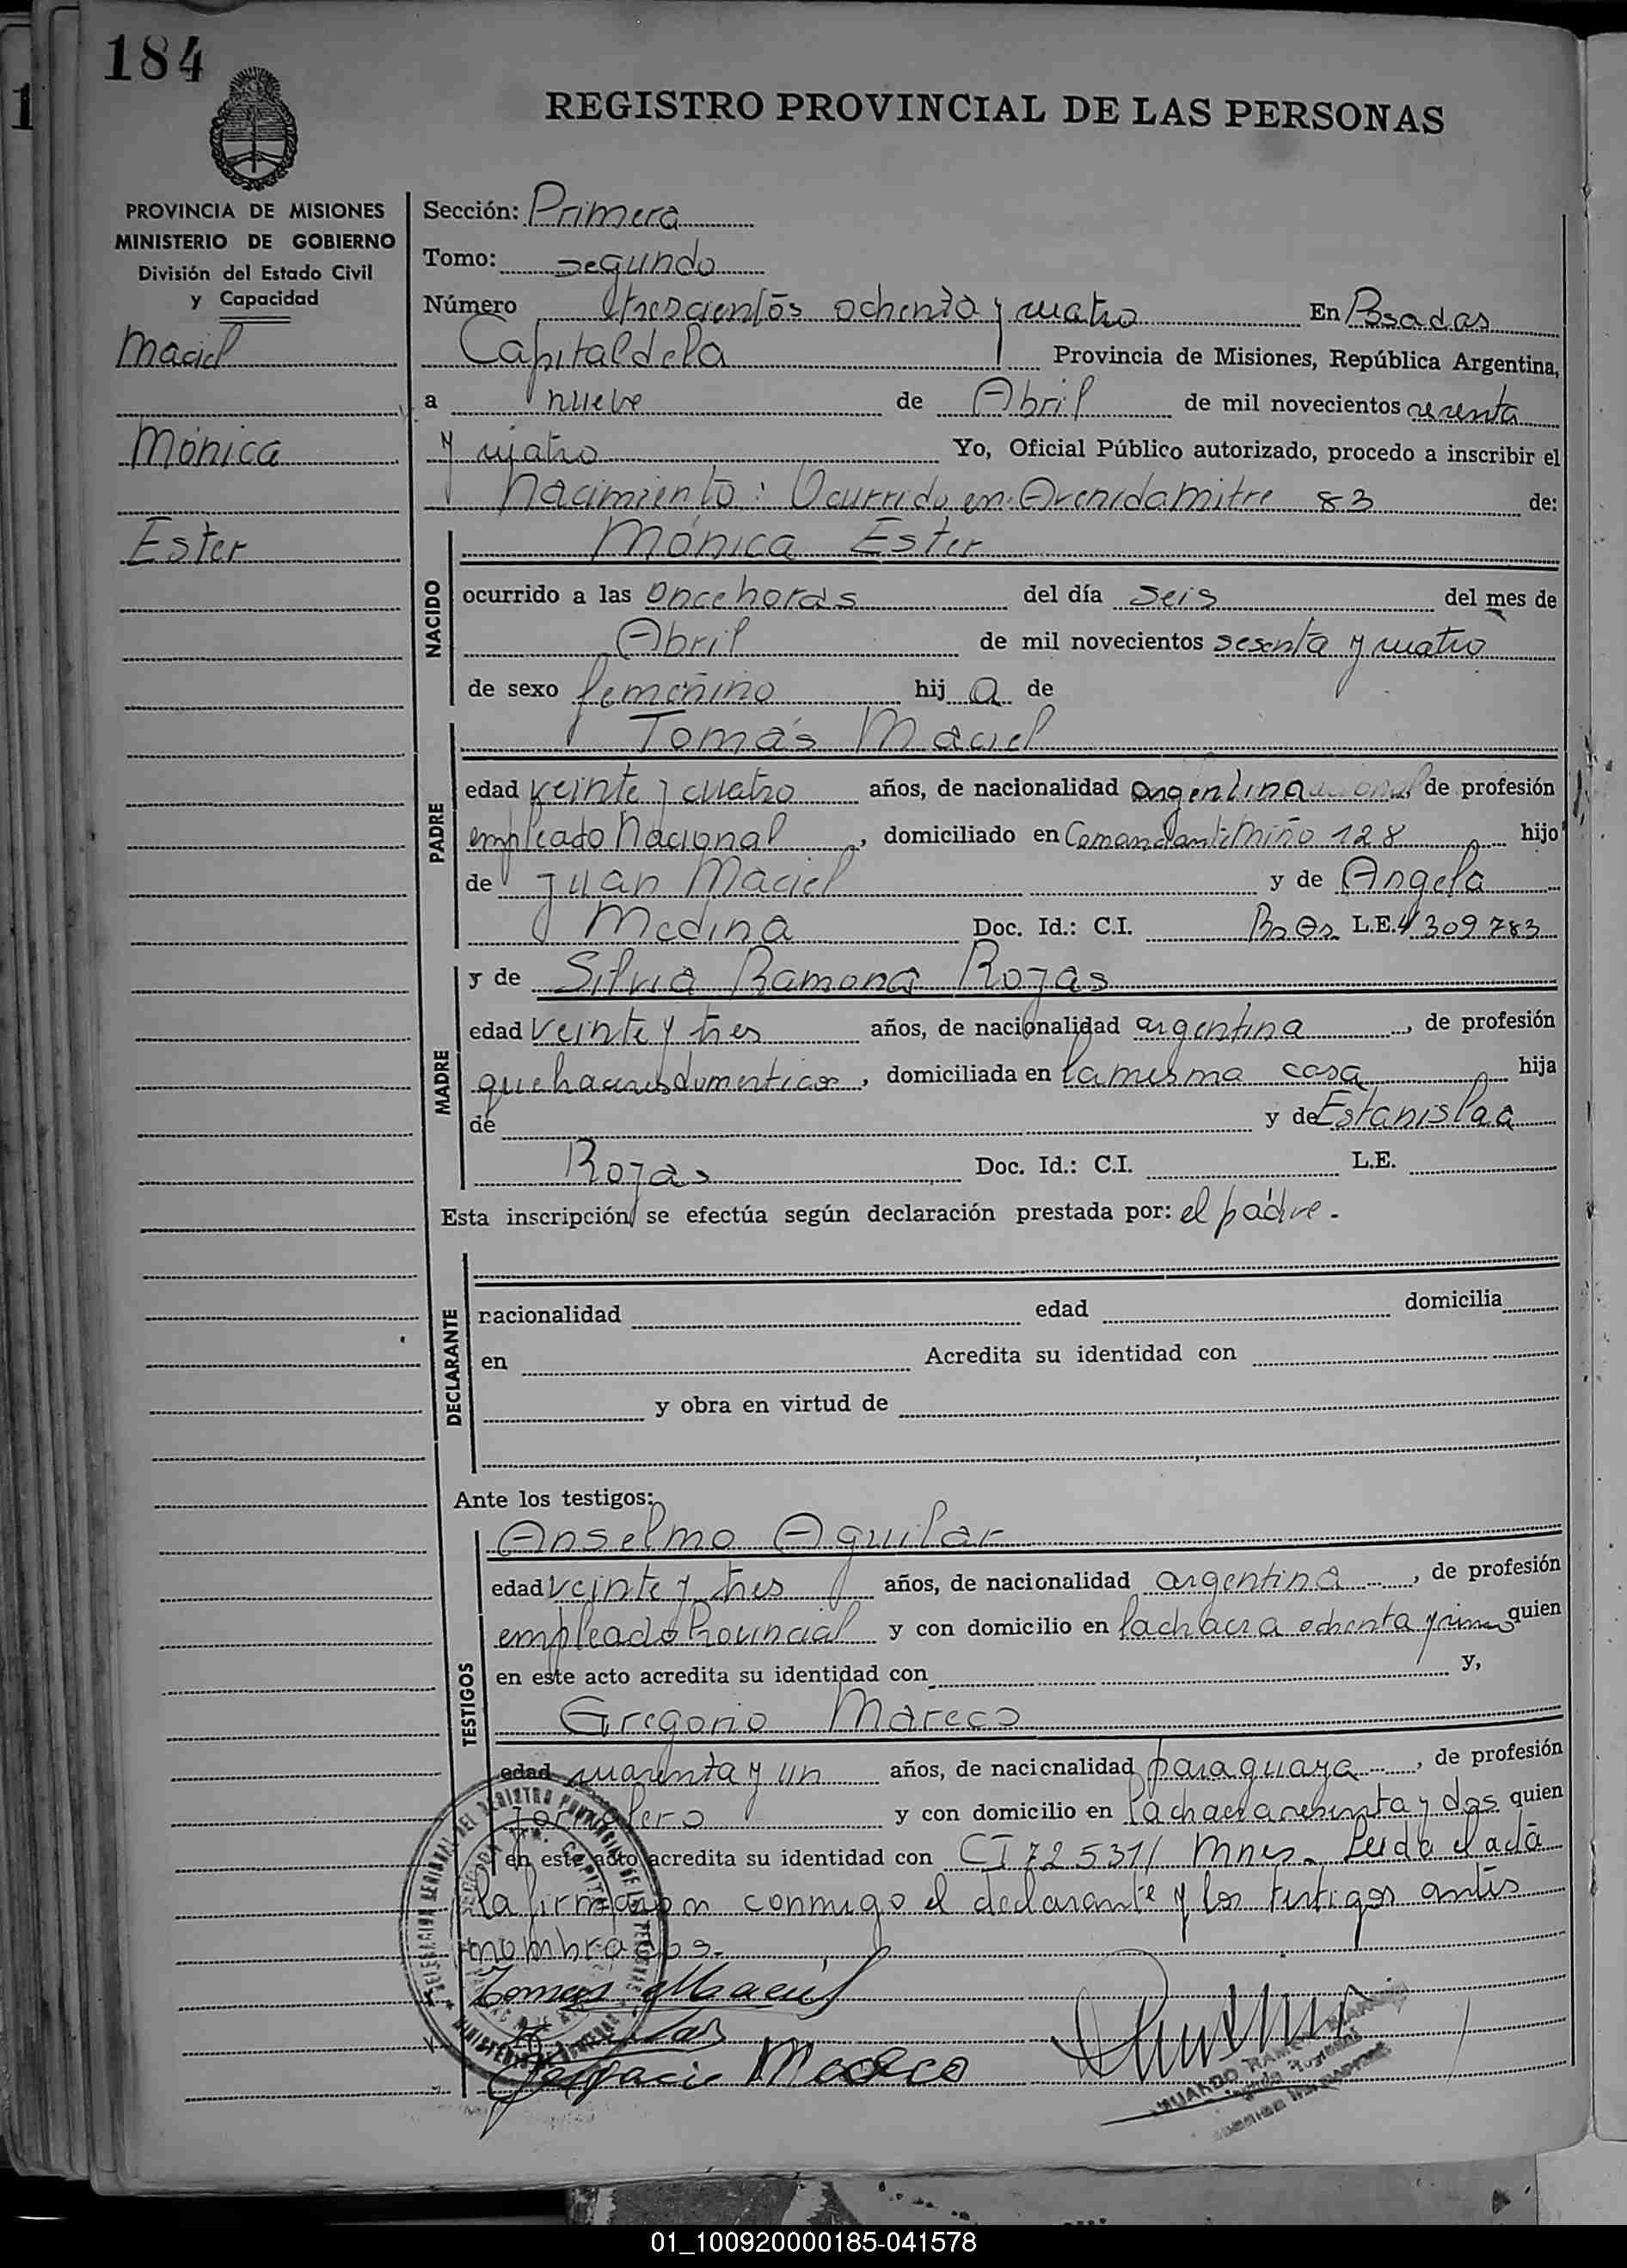 184
REGISTRO PROVINCIAL DE LAS PERSONAS
PROVINCIA DE MISIONES
MINISTERIO DE GOBIERNO
División del Estado Civil
y Capacidad
Maciel
Mónica
Ester
Sección: Primera
Tomo: segundo
Número trescientos ochenta y cuatro En Posadas
Capital de la Provincia de Misiones, República Argentina,
a nueve de Abril de mil novecientos sesenta
y cuatro Yo, Oficial Público autorizado, procedo a inscribir el
Nacimiento: Ocurrido en Avenida Mitre 83 de:
Mónica Ester
NACIDO
ocurrido a las once horas del día seis del mes de
Abril de mil novecientos sesenta y cuatro
de sexo femenino hij a de
Tomás Maciel
PADRE
edad veinte y cuatro años, de nacionalidad argentina de profesión
empleado Nacional, domiciliado en Comandante Miño 128 hijo
de Juan Maciel y de Angela
Medina Doc. Id.: C.I. Bs As L.E. 4309783
MADRE
y de Silvia Ramona Rojas
edad veinte y tres años, de nacionalidad argentina, de profesión
quehaceres domesticos, domiciliada en la misma casa hija
de y de Estanislaa
Rojas Doc. Id.: C.I. L.E.
Esta inscripción se efectúa según declaración prestada por: el padre.
DECLARANTE
nacionalidad edad domicilia
en Acredita su identidad con
y obra en virtud de
Ante los testigos:
TESTIGOS
Anselmo Aguilar
edad veinte y tres años, de nacionalidad argentina, de profesión
empleado Provincial y con domicilio en la chacra ochenta y quien
en este acto acredita su identidad con y,
Gregorio Mareco
edad cuarenta y un años, de nacionalidad paraguaya, de profesión
Jornalero y con domicilio en la chacra y dos quien
en este acto acredita su identidad con CI 72531/ Mnes. Leida el acta
la firman con conmigo el declarante y los testigos antes
nombrados.
Tomas Maciel
Mareco
01_100920000185-041578